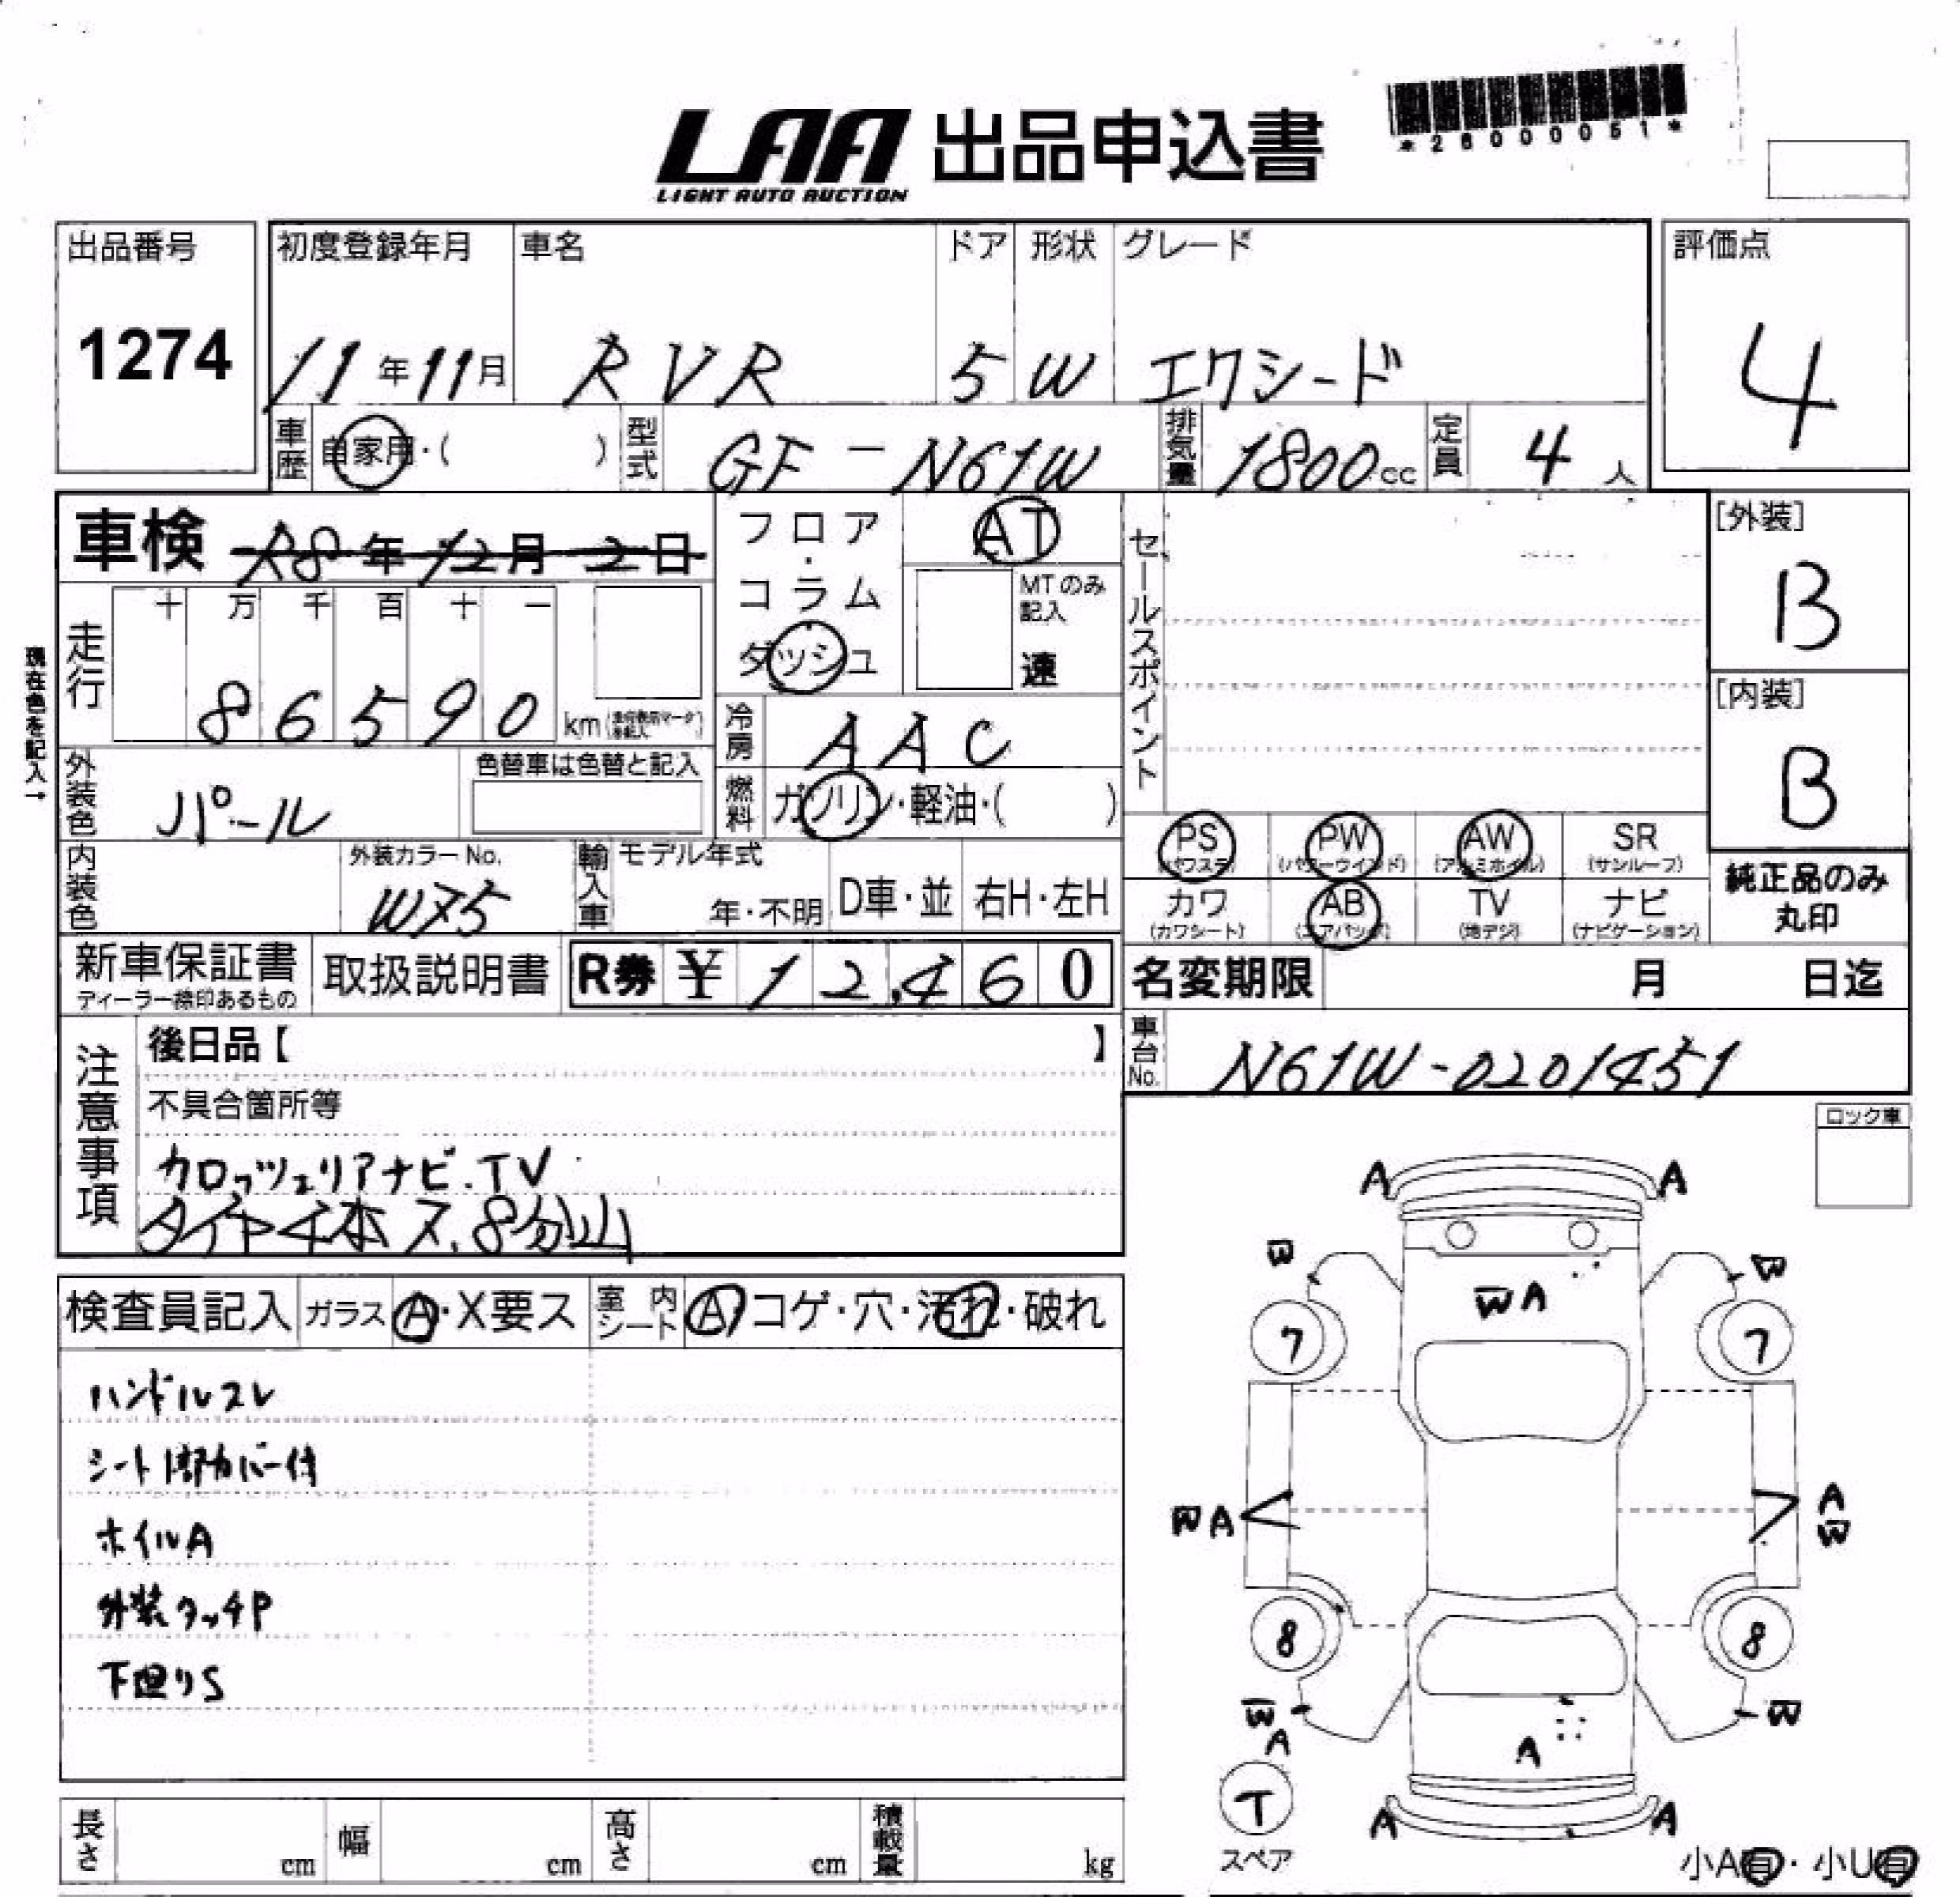 LAA 出品申込書
LIGHT AUTO AUCTION
*26000051*
出品番号 初度登録年月 車名 ドア 形状 グレード 評価点
1274 11年11月 RVR 5 W エクシード 4
車歴 自家用・( ) 型式 GF-N61W 排気量 1800cc 定員 4人
車検 R8年12月2日 フロア・コラム ダッシュ AT セールスポイント [外装]
B
MTのみ記入
速
走行 十 万 千 百 十 一
86590 km
現在色を記入→
[内装]
B
冷房 AAC
外装色 パール 色替車は色替と記入 燃料 ガソリン・軽油・( )
PS PW AW SR
(パワステ) (パワーウインド) (アルミホイル) (サンルーフ)
内装色 外装カラーNo. W75 輸入車 モデル年式 年・不明 D車・並 右H・左H
カワ AB TV ナビ
(カワシート) (エアバッグ) (地デジ) (ナビゲーション)
純正品のみ
丸印
新車保証書 取扱説明書 R券 ¥12,460 名変期限 月 日迄
ディーラー捺印あるもの
注意事項 後日品【 】 車台No. N61W-0201451
不具合箇所等
カロッツェリアナビ.TV
タイヤ4本ス.8分山
ロック車
検査員記入 ガラス A・X要ス 室内シート A・コゲ・穴・汚れ・破れ
ハンドルスレ
カバー付
ホイルA
外装タッチP
下廻りS
A A
W W
WA
7 7
WA A
W
8 8
W W
A A
T
スペア
A A
小A有・小U有
長さ cm 幅 cm 高さ cm 積載量 kg